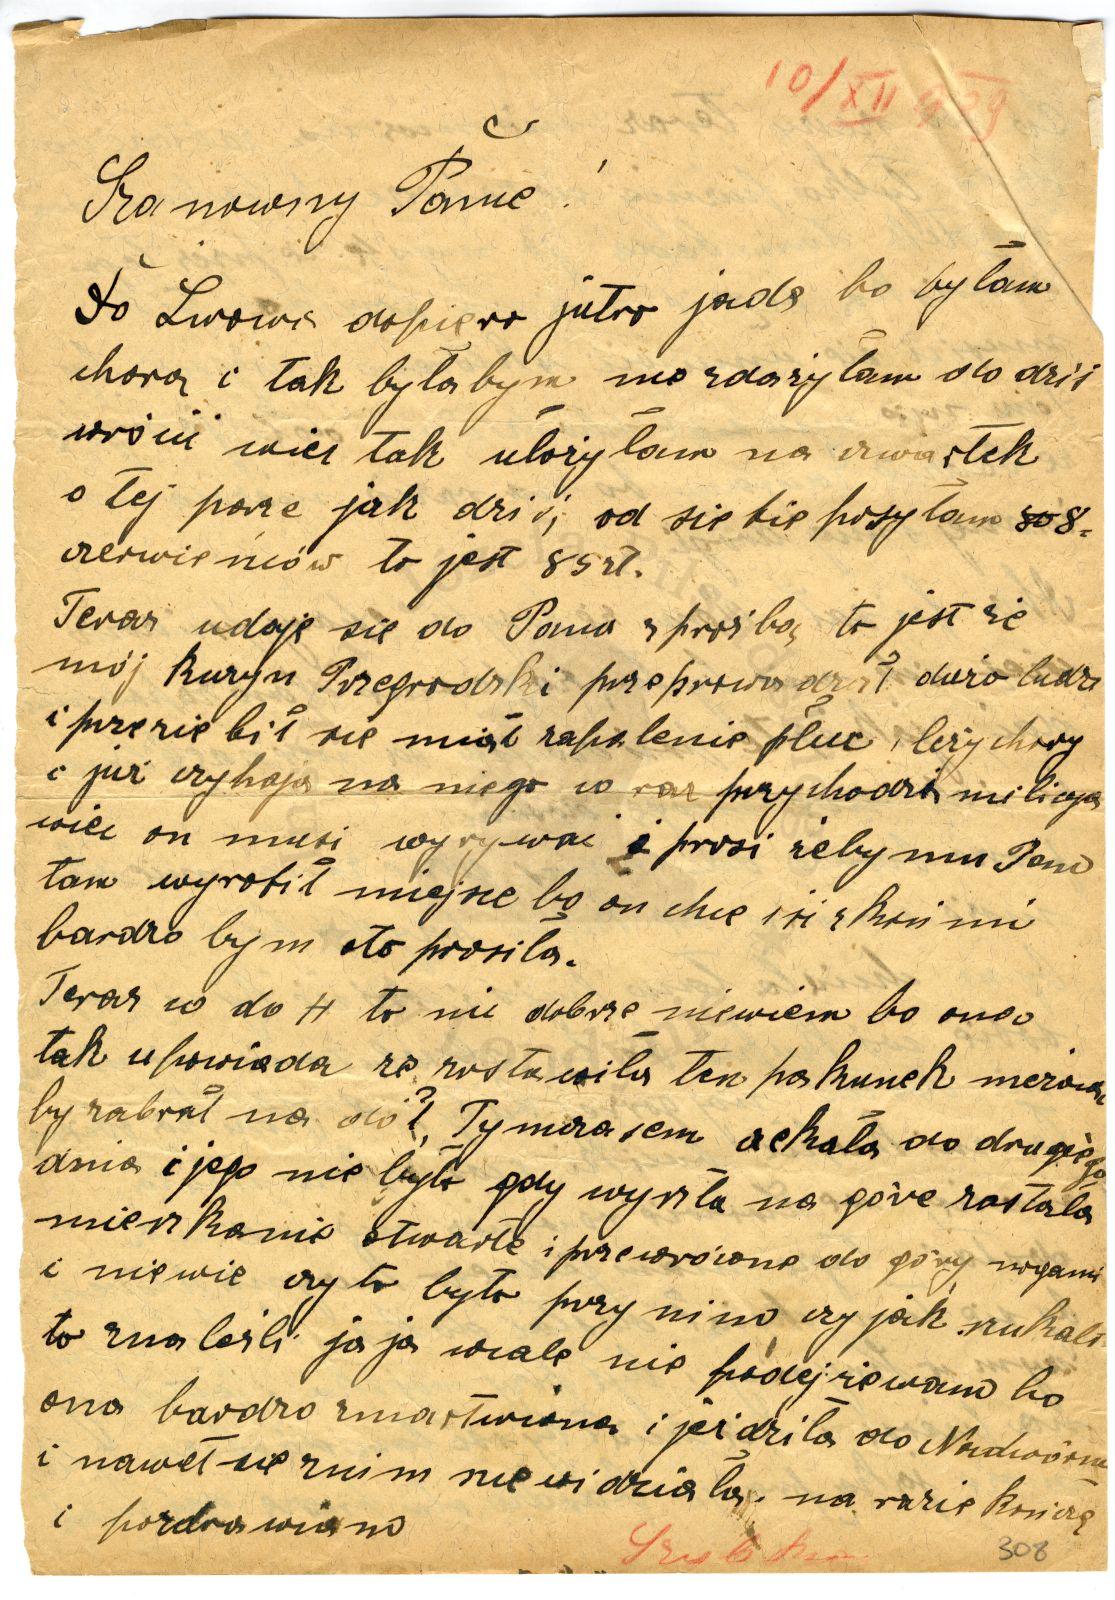 10/XII 939
Szanowny Panie!
Do Lwowa dopiero jutro jadę bo byłam
chora i tak byłabym nie zdążyłam do dziś
wrócić więc tak ułożyłam na czwartek
o tej porze jak dziś, od siebie posyłam 8.
czerwieńców to jest 85 zł.
Teraz udaje się do Pana z prośbą to jest że
mój kuzyn Przegrodzki przeprowadził dużo ludzi
i przeziębił się miał zapalenie płuc, leży chory
i już czyhają na niego w raz przychodzi milicja
więc on musi wyrywać i prosi żeby mu Pan
tam wyrobił miejsce bo on chce iść z końmi
bardzo bym oto prosiła.
Teraz w do H to nic dobrze niewiem bo ona
tak upowiada że zostawiła ten pakunek
by zabrał na dół, Tymczasem czekała do drugiego
dnia i jego nie było gdy wyszła na górę zastała
mieszkanie otwarte i przewrócone do góry nogami
i niewie czy to było przy nim czy jak szukali
to znaleźli ja ja wcale nie podejżewam bo
ona bardzo zmartwiona i jeździła do Nadwórnej
i nawet się z nim niewidziała. na razie kończę
i pozdrawiam
308